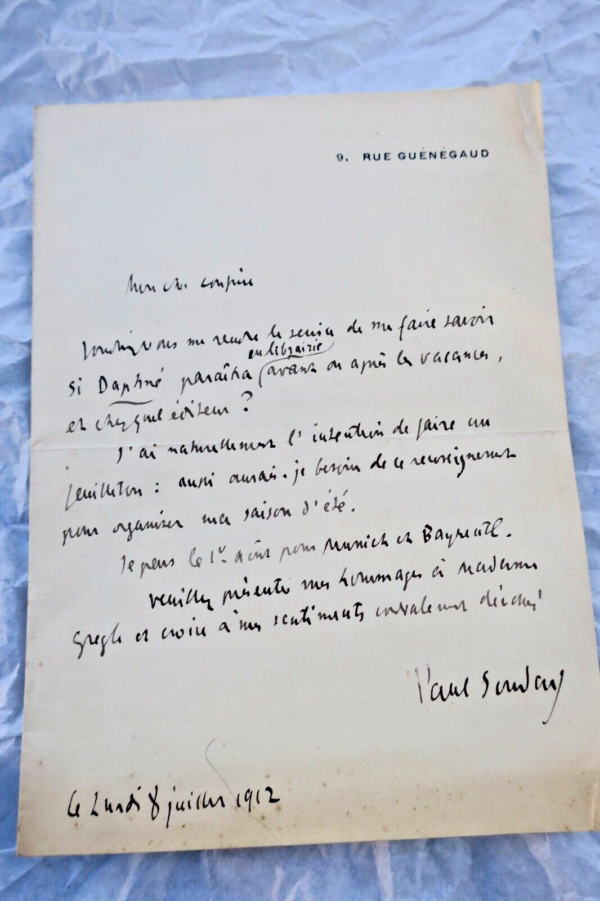 9, RUE GUÉNÉGAUD
Mon cher confrère
Voudriez-vous me rendre le service de me faire savoir
en librairie
si Daphné paraîtra avant ou après les vacances,
et chez quel éditeur ?
J'ai naturellement l'intention de faire un
feuilleton : aussi aurais-je besoin de ce renseignement
pour organiser ma saison d'été.
Je pars le 1er août pour Munich et Bayreuth.
Veuillez présenter mes hommages à Madame
Gregh et croire à mes sentiments cordialement dévoués
Paul Souday
Le Lundi 8 juillet 1912